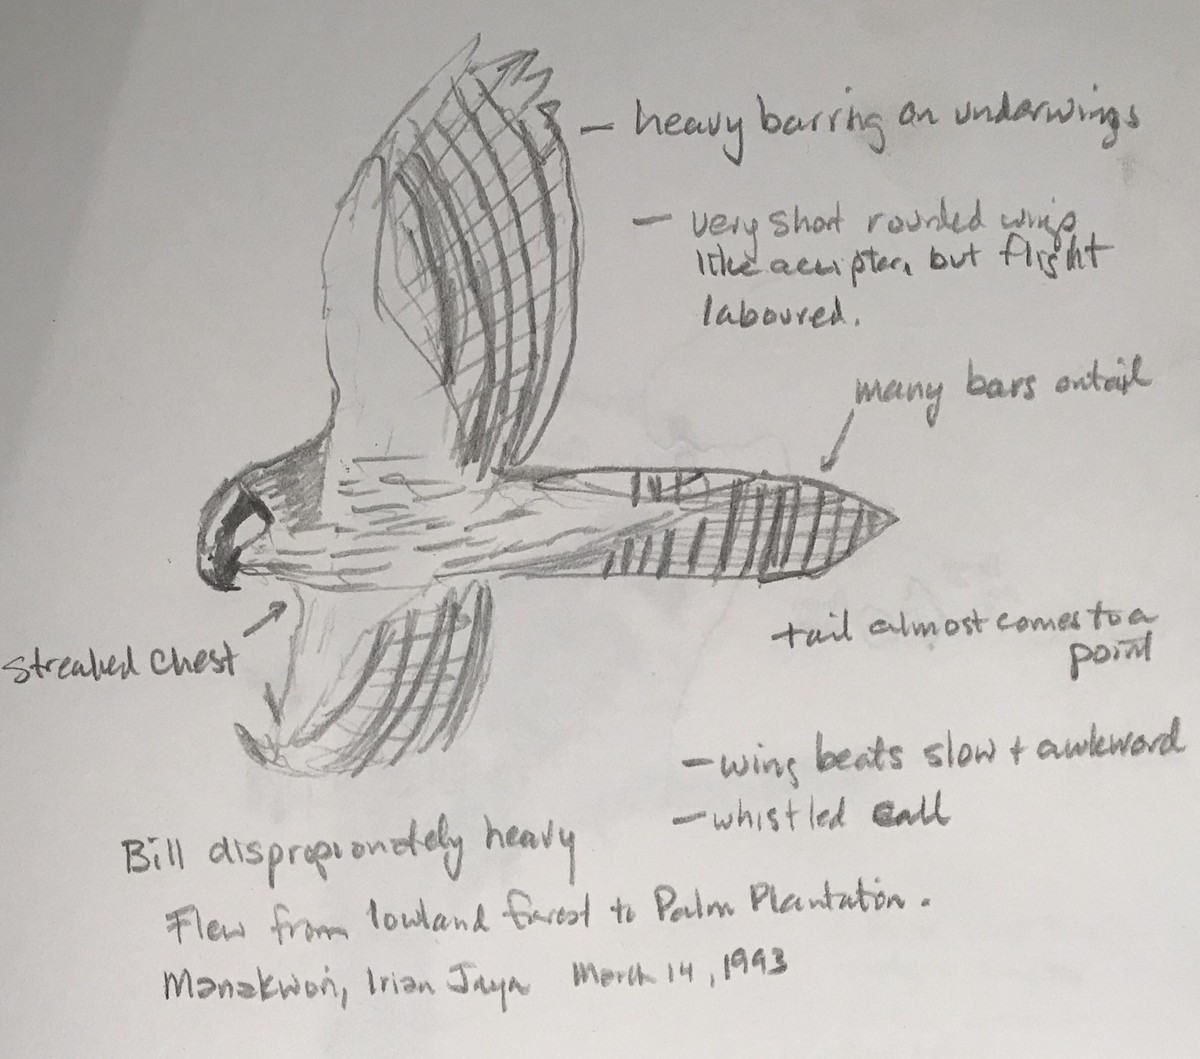 — heavy barring on underwings
— very short rounded wings
like accipter, but flight
laboured.
many bars on tail
tail almost comes to a
point
streaked chest
— wing beats slow + awkword
— whistled call
Bill dispropionately heavy
Flew from lowland forest to Palm Plantation.
Manakwori, Irian Jaya March 14, 1993